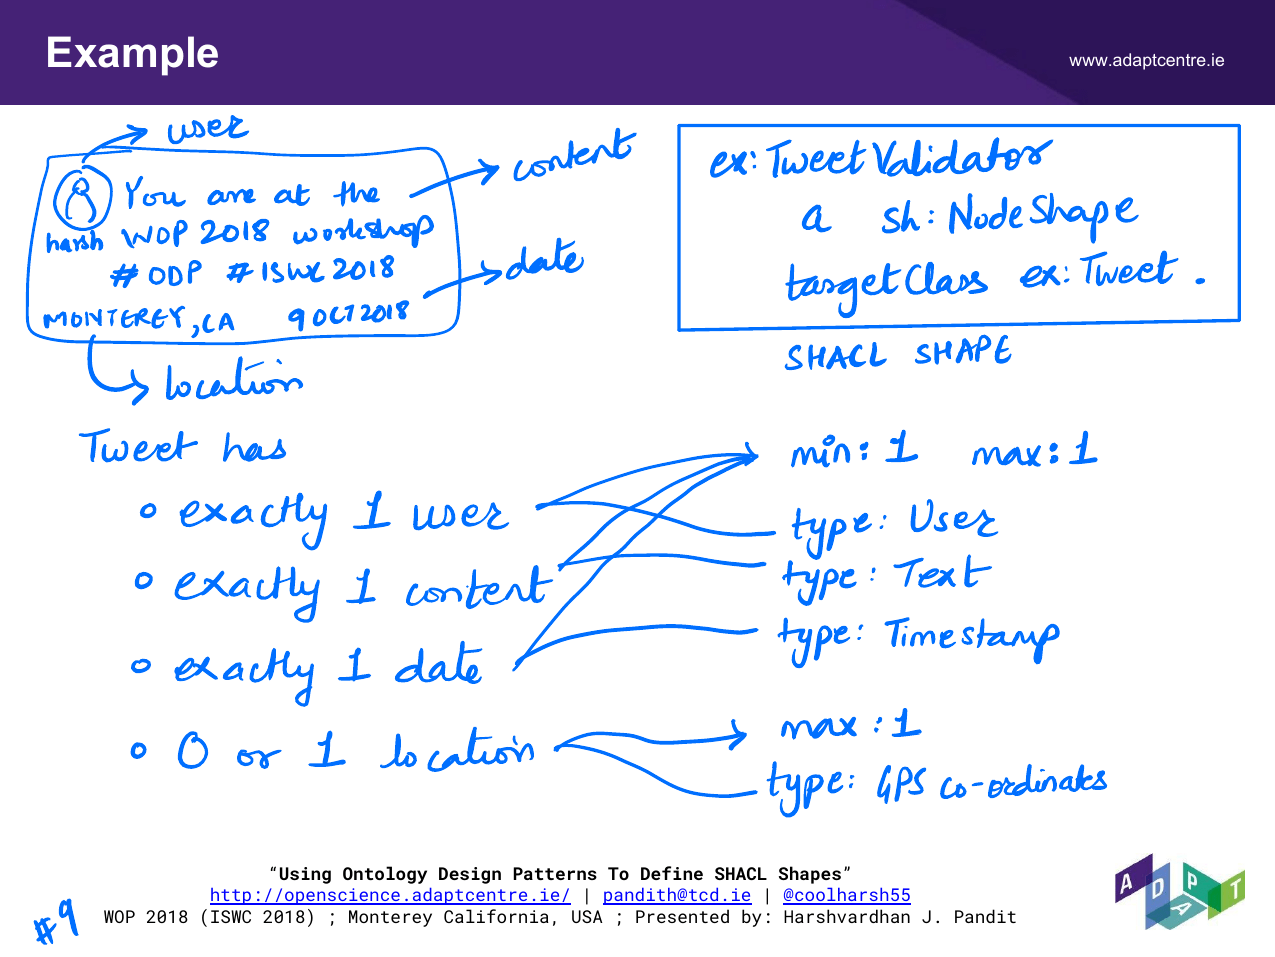 Example
www.adaptcentre.ie
user
You are at the
content
harsh WOP 2018 workshop
#ODP #ISWC2018
date
MONTEREY, CA 9 OCT 2018
location
ex:TweetValidator
a sh:NodeShape
targetClass ex:Tweet .
SHACL SHAPE
Tweet has
exactly 1 user
exactly 1 content
exactly 1 date
0 or 1 location
min: 1 max: 1
type: User
type: Text
type: Timestamp
max: 1
type: GPS co-ordinates
“Using Ontology Design Patterns To Define SHACL Shapes”
http://openscience.adaptcentre.ie/ | pandith@tcd.ie | @coolharsh55
WOP 2018 (ISWC 2018) ; Monterey California, USA ; Presented by: Harshvardhan J. Pandit
#9
ADAPT